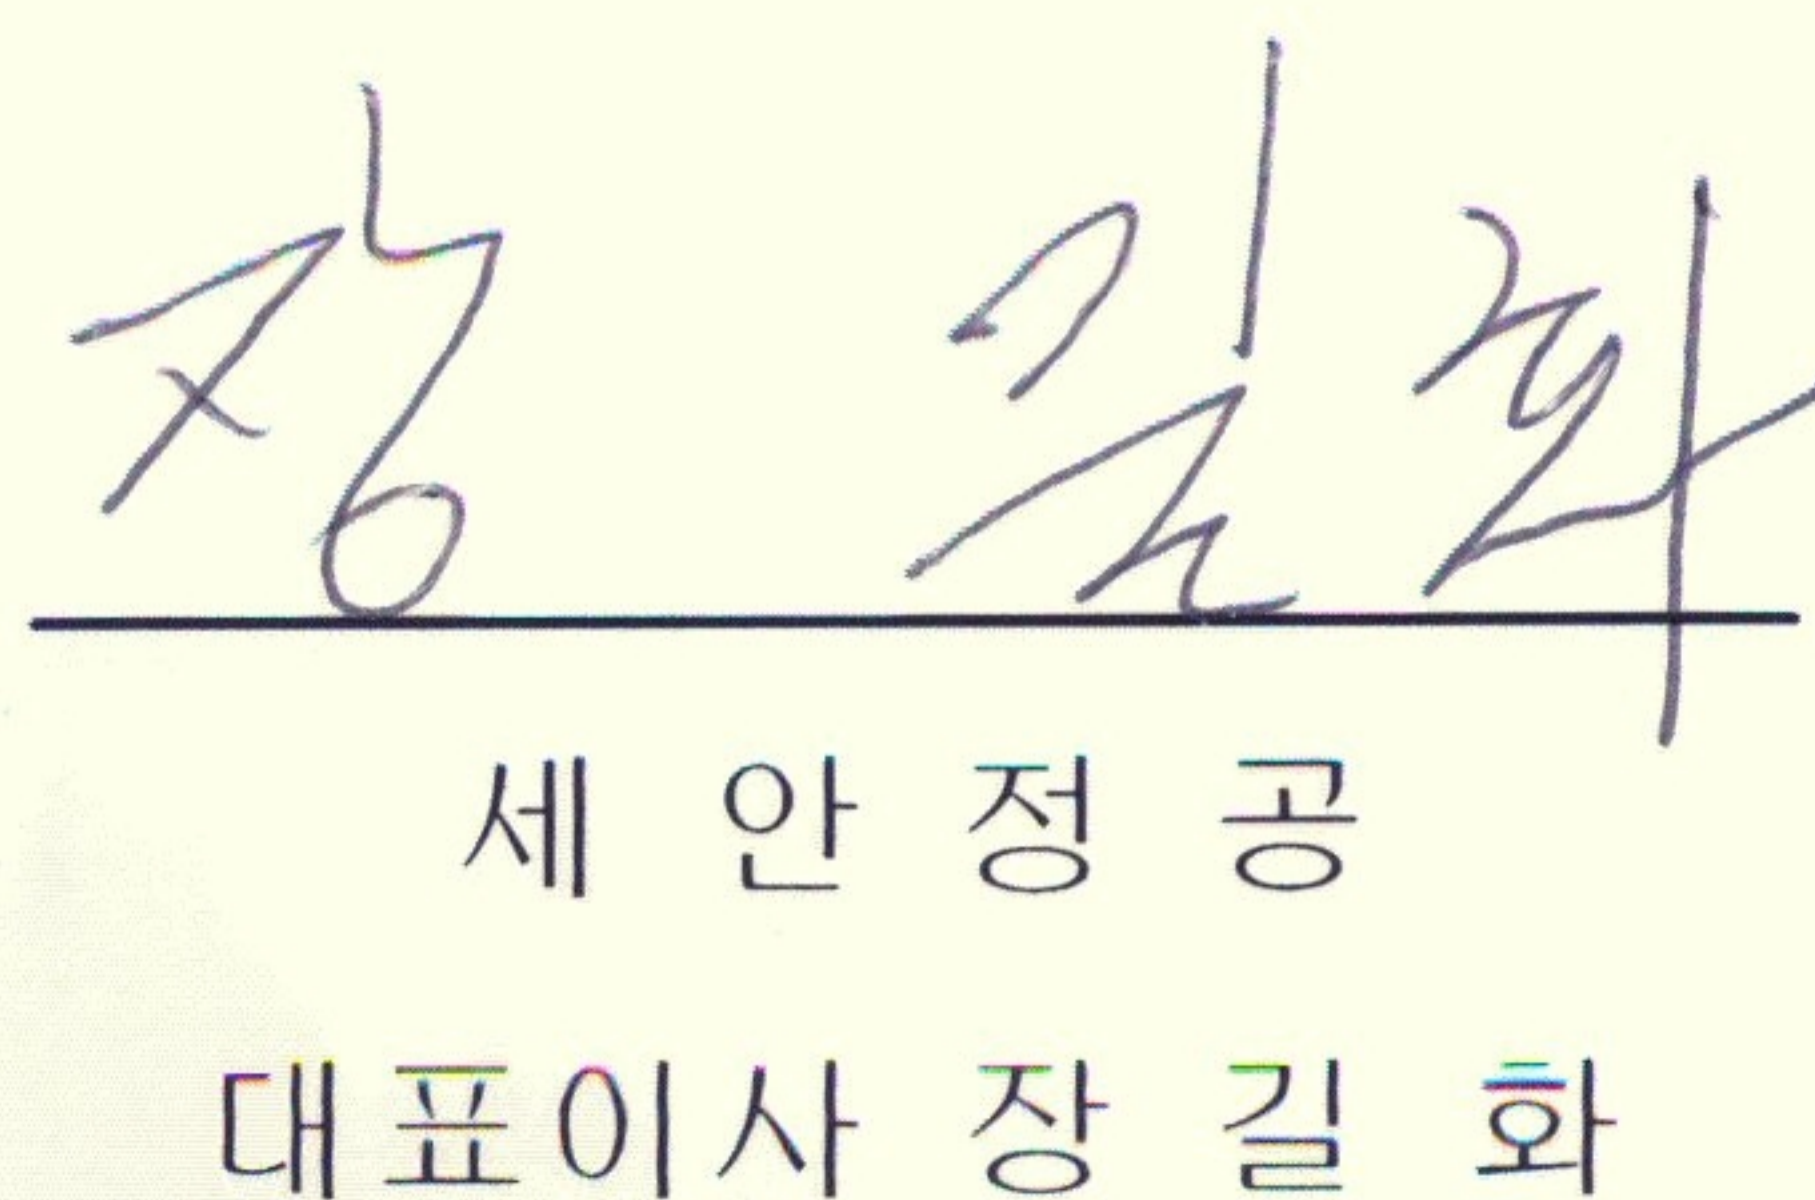 장 길화
세안정공
대표이사 장길화